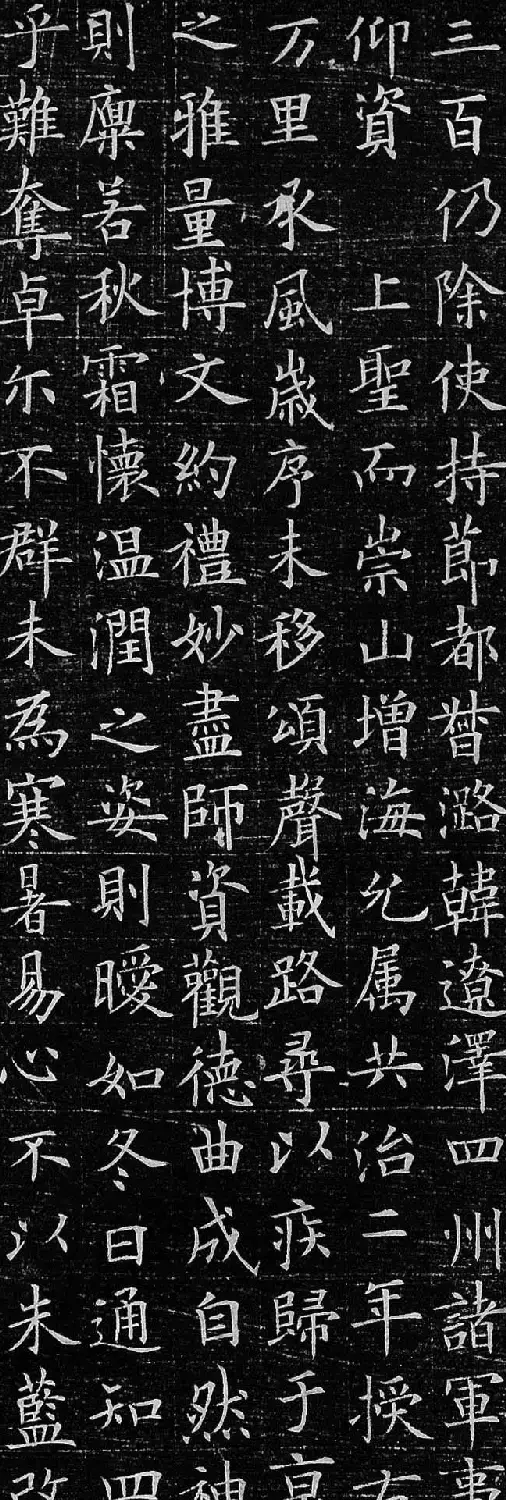 三百仍除使持莭都督潞韓遼澤四州諸軍事
仰資 上聖而崇山增海允属共治二年授右
万里承風嵗序未移頌聲載路尋以疾歸于京
之雅量博文約禮妙盡師資觀德曲成自然神
則廩若秋霜懷温潤之姿則曖如冬日通知四
乎難奪卓尒不群未為寒暑易心不以朱藍改